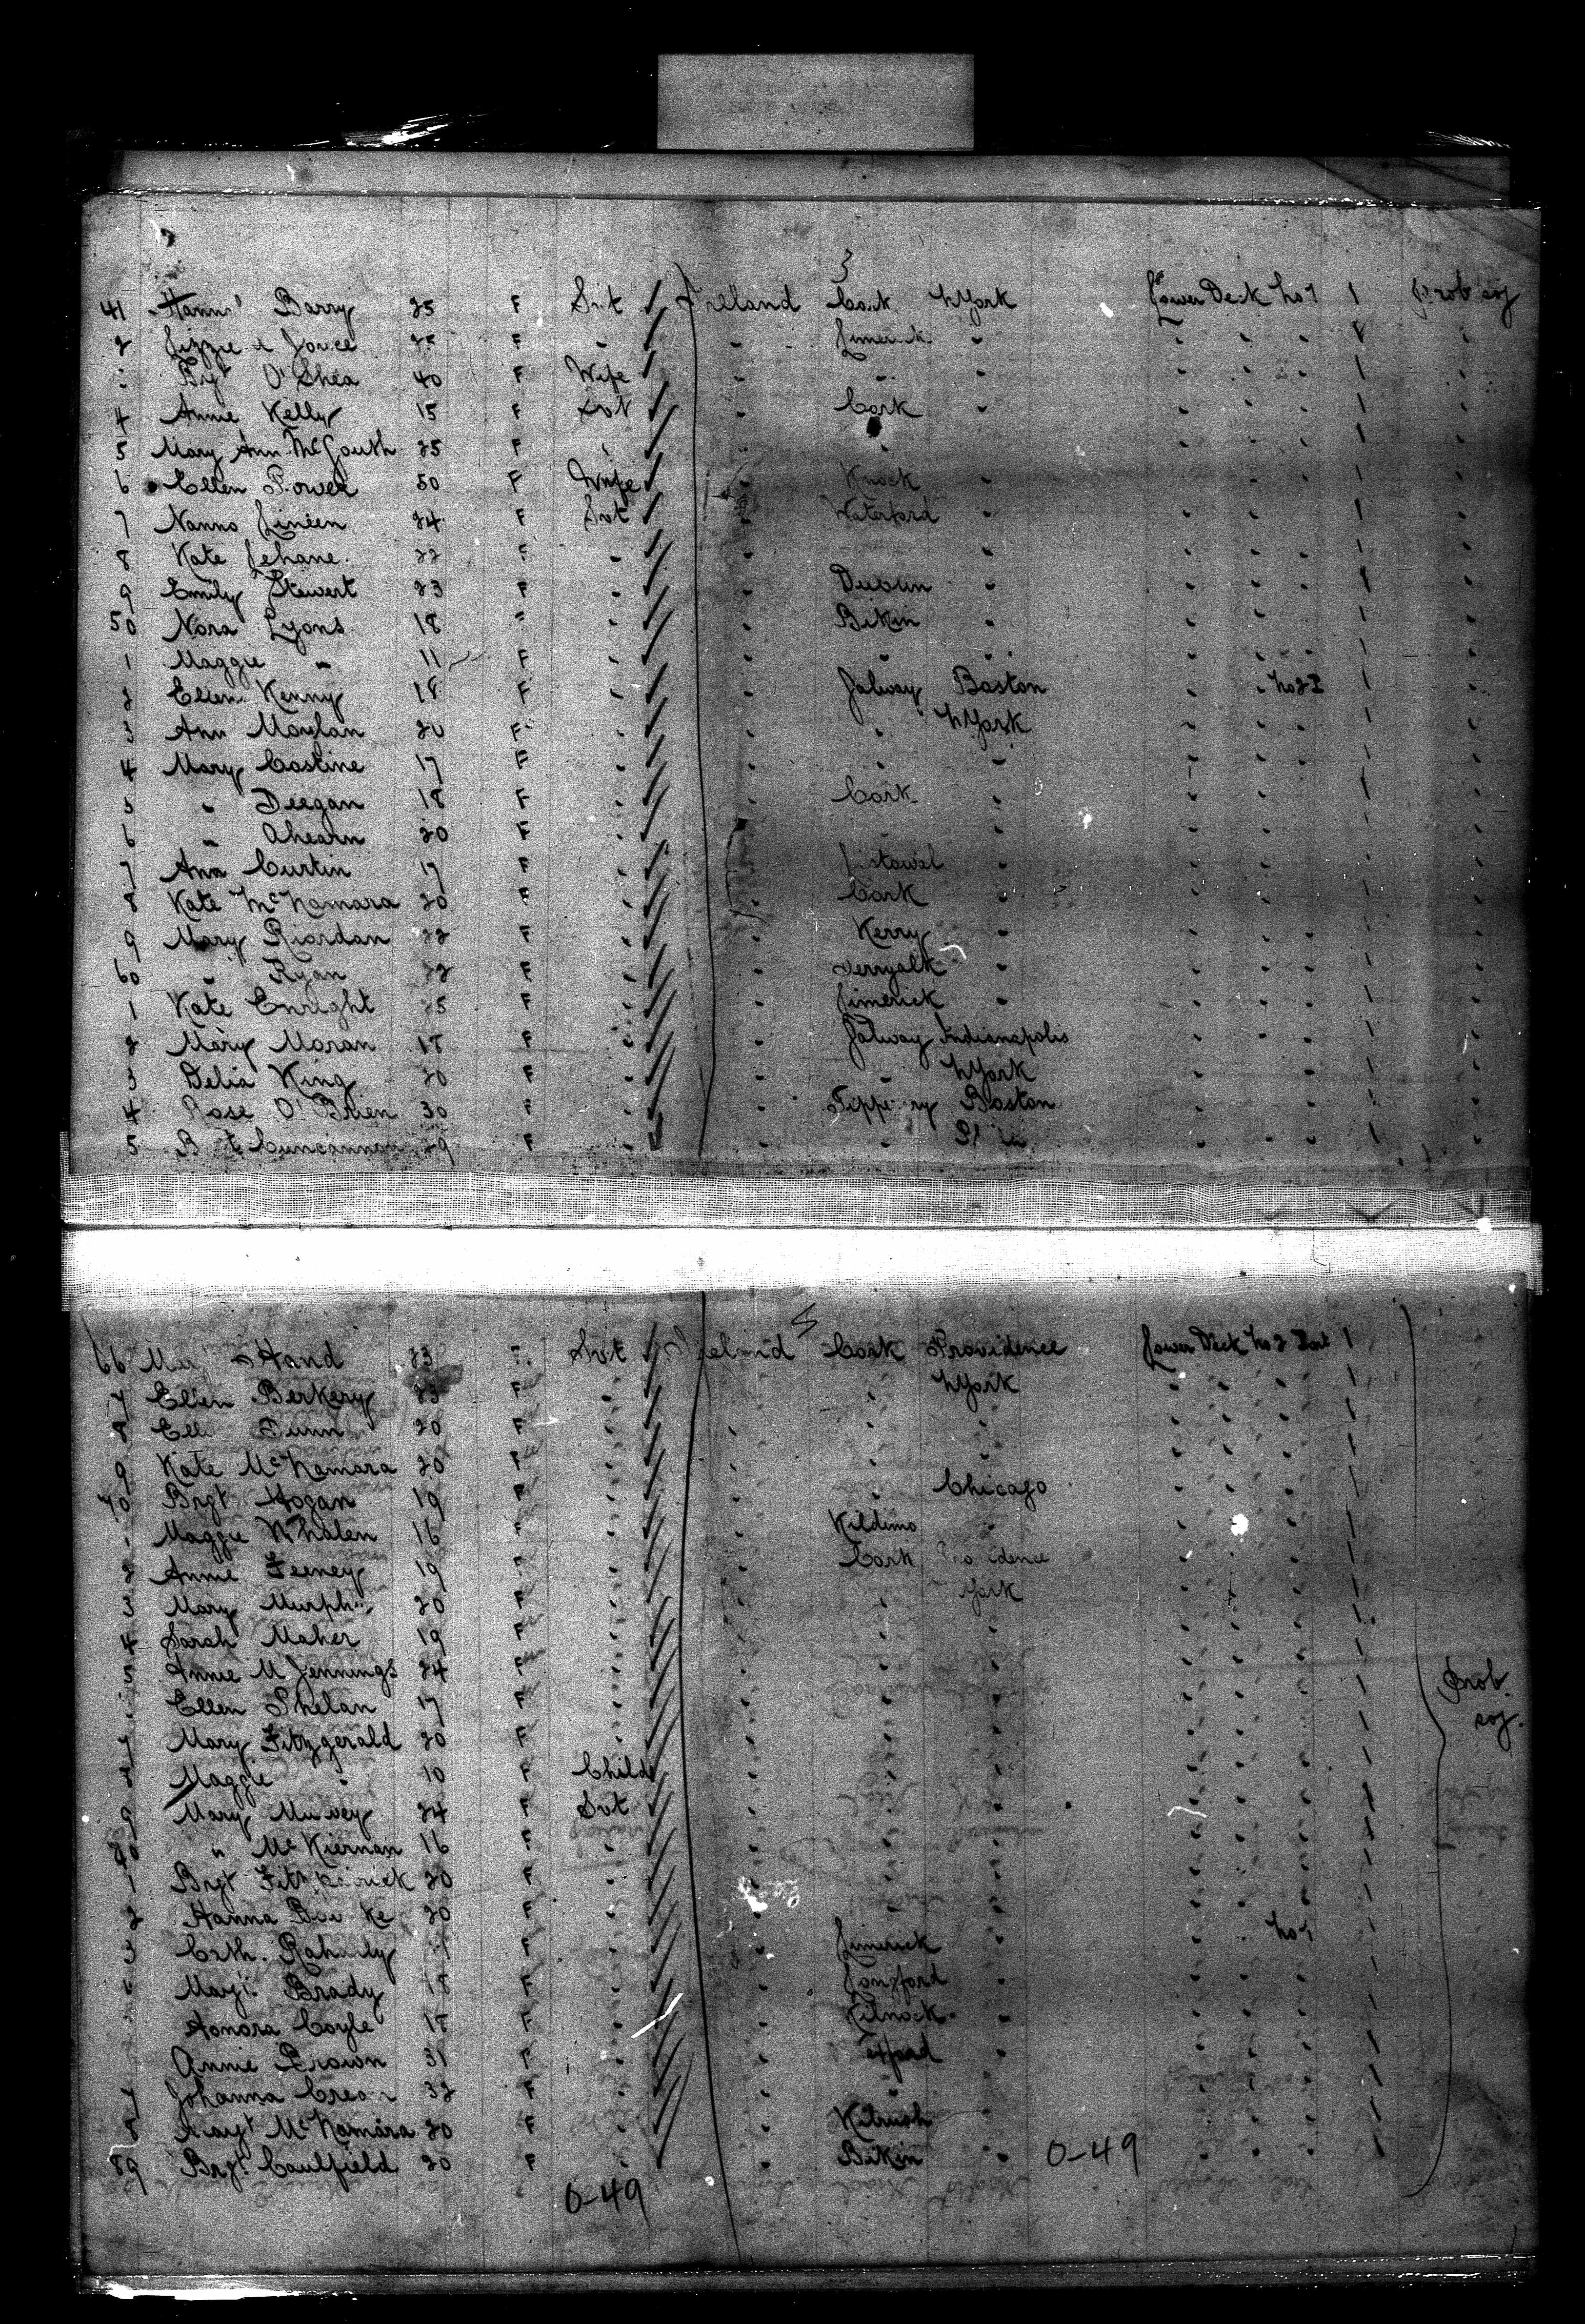 3
41 Hanna Barry 25 F Svt Ireland Cork N York Lower Deck No 1 1 Prob soj
2 Lizzie Joyce 25 F " " Limerick " " " " 1 "
Brgt O'Shea 40 F Wife " " " " " " 1 "
4 Annie Kelly 15 F Svt " Cork " " " " 1 "
5 Mary Ann 25 F " " " " " 1 "
6 Ellen Power 50 F Wife " Knock " " " " 1 "
7 Nanno Lineen 24 F Svt " Waterford " " " " 1 "
8 Kate Lehane 22 F " " " " " " 1 "
9 Emily Stewert 23 F " " Dublin " " " " 1 "
50 Nora Lyons 18 F " " Bikin " " " " 1 "
1 Maggie " 11 F " " " " " " " 1 "
2 Ellen Kenny 18 F " " Galway Boston " " No 2 1 "
3 Ann Moylan 20 F " " " N York " " " 1 "
4 Mary Costine 17 F " " " " " " " 1 "
5 " Deegan 18 F " " Cork " " " " 1 "
6 " Ahearn 20 F " " " " " " " 1 "
7 Ann Curtin 17 F " " Listowel " " " " 1 "
8 Kate McNamara 20 F " " Cork " " " " 1 "
9 Mary Riordan 22 F " " Kerry " " " " 1 "
60 " Ryan 22 F " " " " " " 1 "
1 Kate Enright 25 F " " Limerick " " " " 1 "
2 Mary Moran 18 F " " Galway Indianapolis " " " 1 "
3 Delia King 20 F " " " N York " " " 1 "
4 Rose O'Brien 30 F " " Tipperary Boston " " " 1 "
5 Cuncannon 29 F " " " " " " 1 "
66 Hand 23 F Svt Ireland Cork Providence Lower Deck No 2 1
7 Ellen Berkery 23 F " " N York " " " 1
8 Dunn 20 F " " " " " " " 1
9 Kate McNamara 20 F " " " " " " " 1
70 Brgt Hogan 19 F " " " Chicago " " " 1
Maggie Whalen 16 F " " Kildimo " " " " 1
2 Annie Feeney 19 F " " Cork Providence " " " 1
3 Mary Murphy 20 F " " " York " " " 1
4 Sarah Maher 19 F " " " " " " " 1
5 Annie M Jennings 24 F " " " " " " " 1
Ellen Phelan 17 F " " " " " " " 1 Prob.
7 Mary Fitzgerald 20 F " " " " " " " 1 soj.
8 Maggie " 10 F Child " " " " " " 1
9 Mary Mulvey 24 F Svt " " " " " " 1
80 " McKiernan 16 F " " " " " " " 1
1 Brgt Fitzpatrick 20 F " " " " " " " 1
2 Hanna 20 F " " " " " " " 1
3 Cath. F " " Limerick " " No 1 1
4 Brady 18 F " " Longford " " " " 1
Honora Coyle 18 F " " Kilnock " " " " 1
Annie Brown 31 F " " " " " " 1
7 Johanna 32 F " " " " " " " 1
8 Margt McNamara 20 F " " Kilrush " " " " 1
89 Brgt Caulfield 20 F " " Bikin " 0-49 " " " 1
0-49